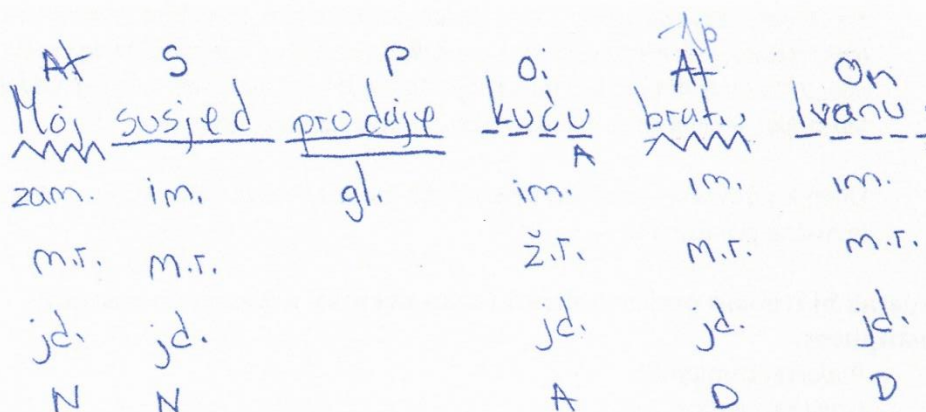 Ap
At S P Oi At On
Moj susjed prodaje kuću bratu Ivanu
A
zam. im. gl. im. im. im.
m.r. m.r. ž.r. m.r. m.r.
jd. jd. jd. jd. jd.
N N A D D